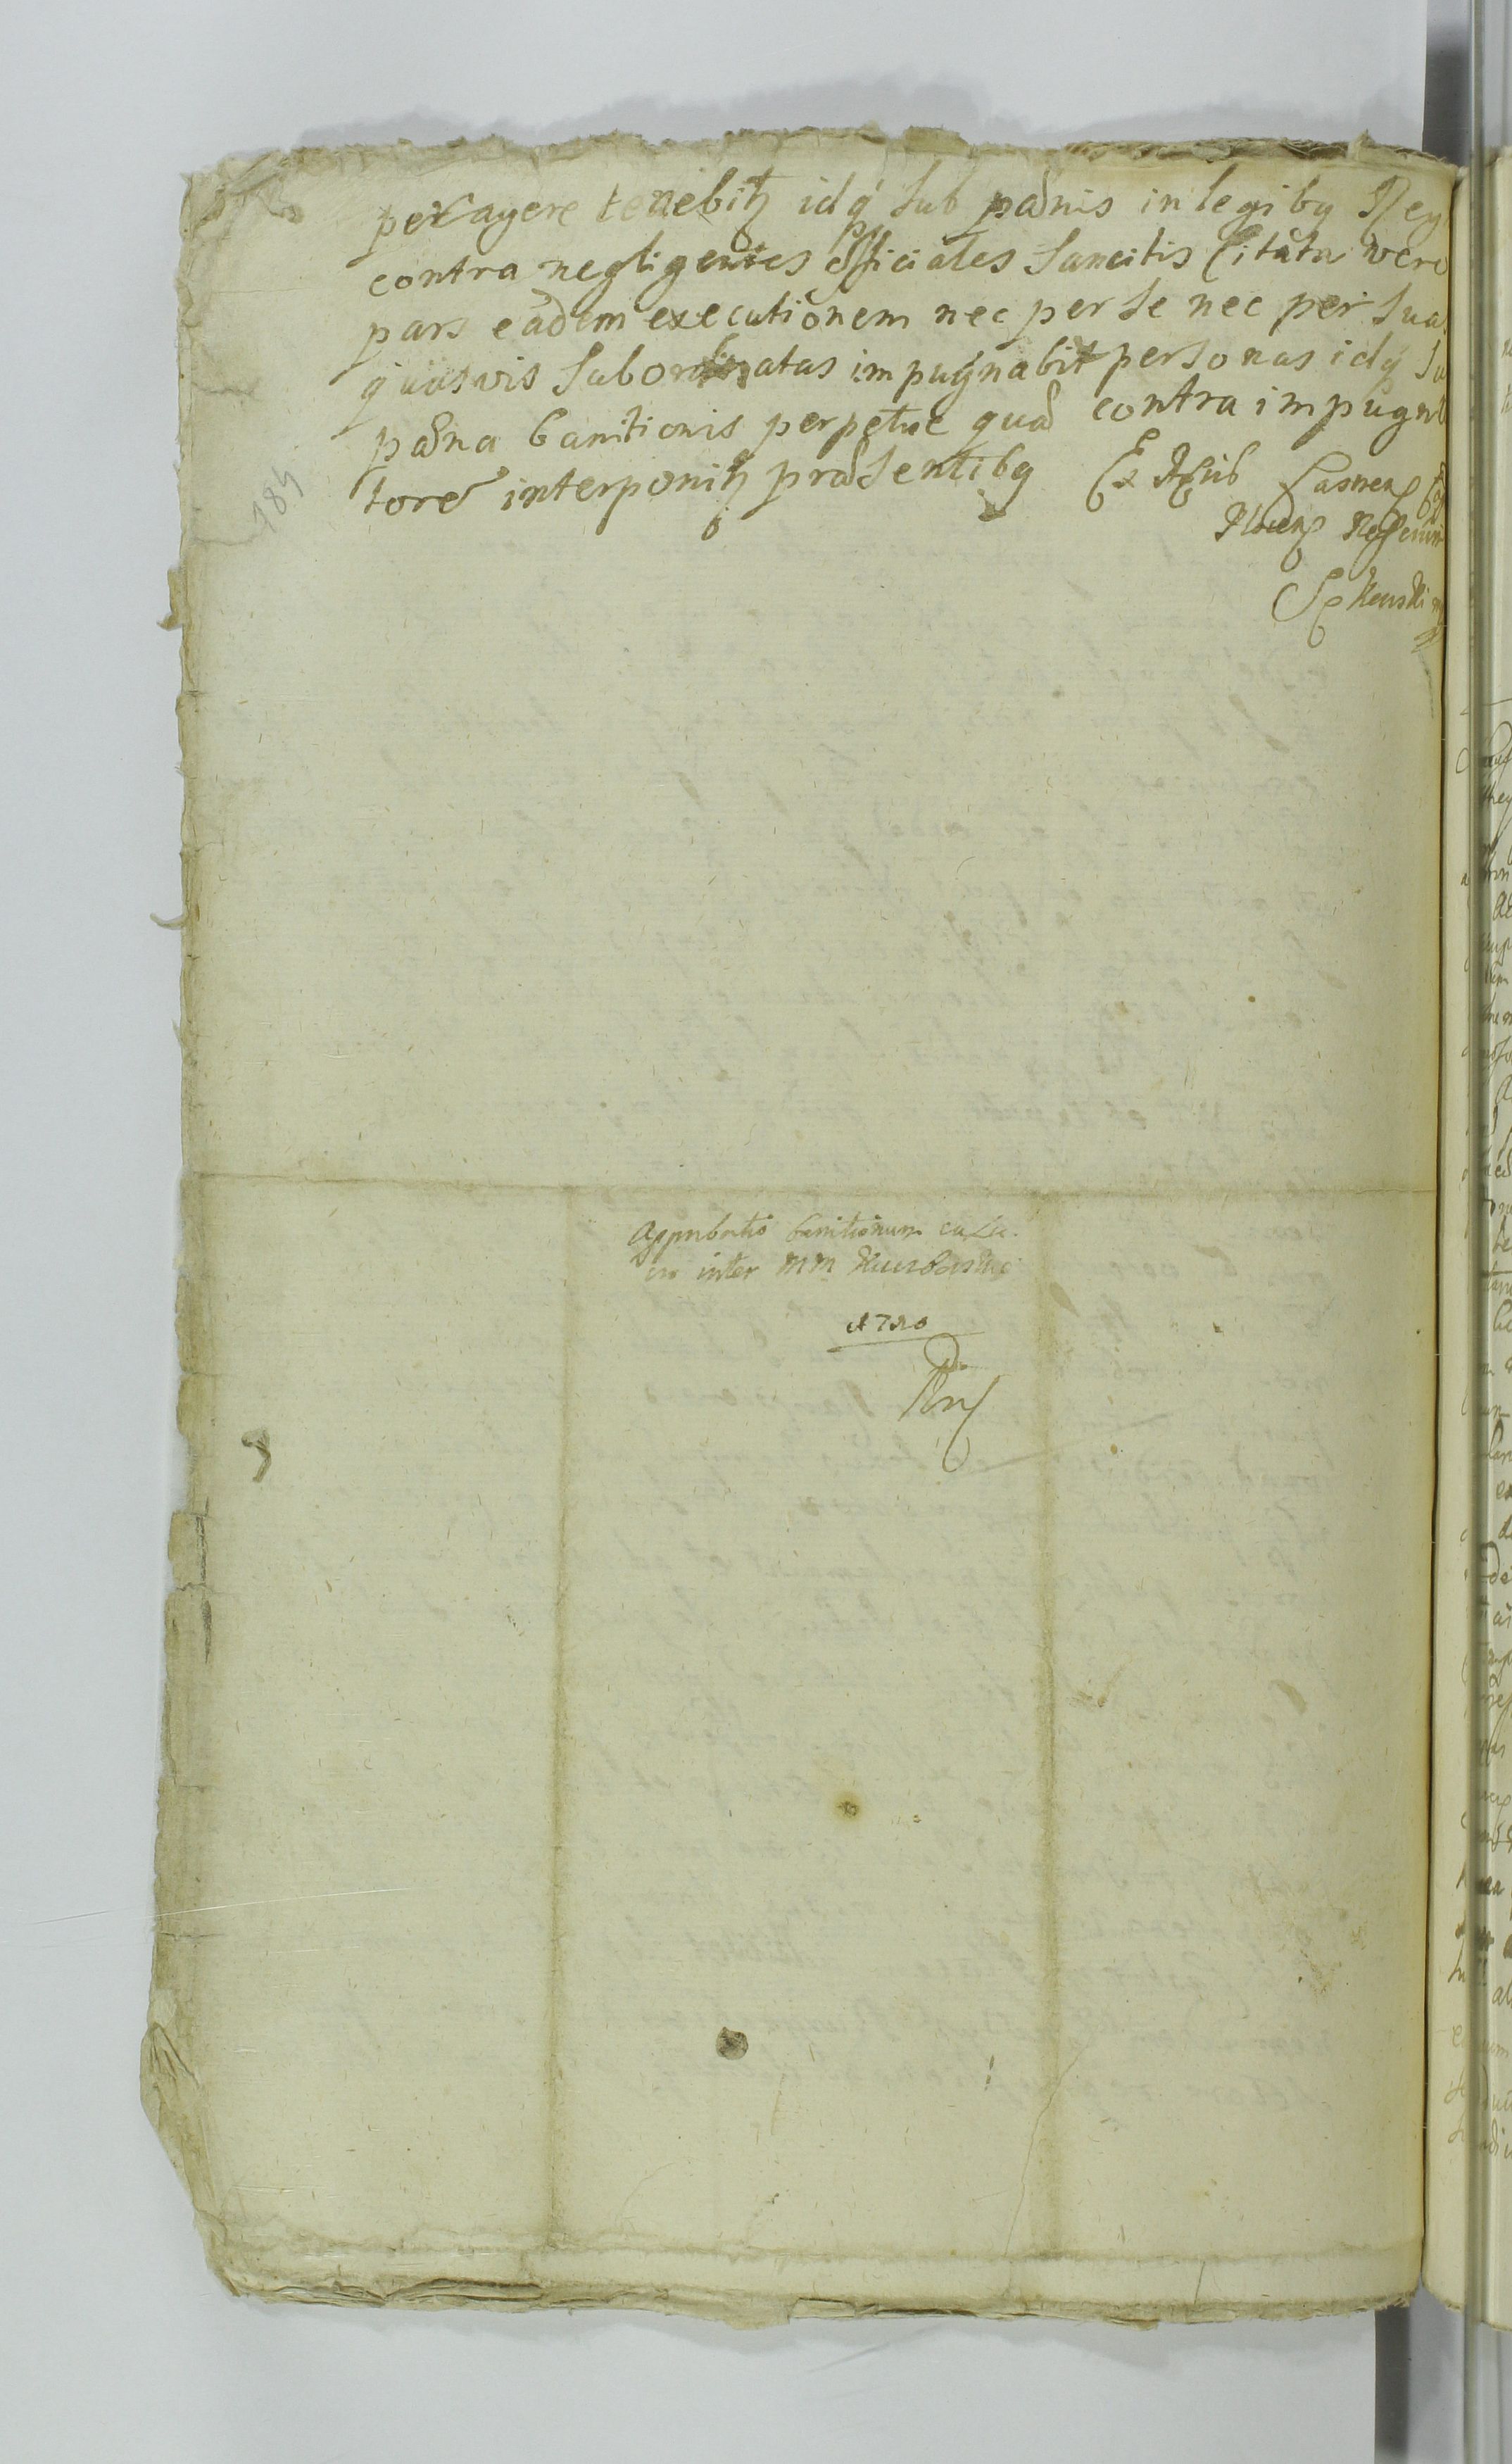 peragere tenebitʒ idqʒ sub pænis in legibq Reg
contra negligentes officiales sancitis Citata vero
pars eadem executionem nec per se nec per suas
quasvis subordinatas impugnabit personas idqʒ su
pæna banitionis perpetuæ quæ contra impugna
torē interponitʒ præsentibq Ex Actis Castren Cap
184
Approbatio banitionum
inter MM
1720